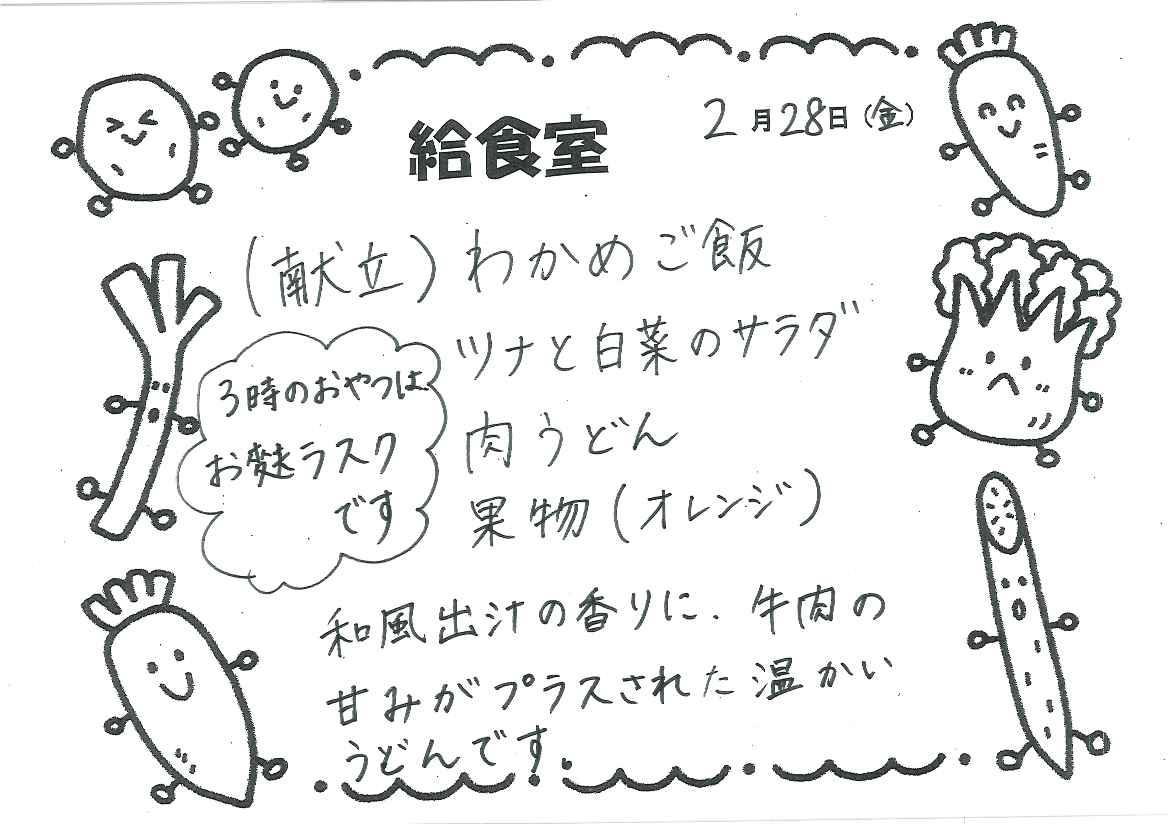 給食室
2月28日(金)
(献立)わかめご飯
ツナと白菜のサラダ
肉うどん
果物(オレンジ)
3時のおやつは
お麩ラスク
です
和風出汁の香りに、牛肉の
甘みがプラスされた温かい
うどんです。